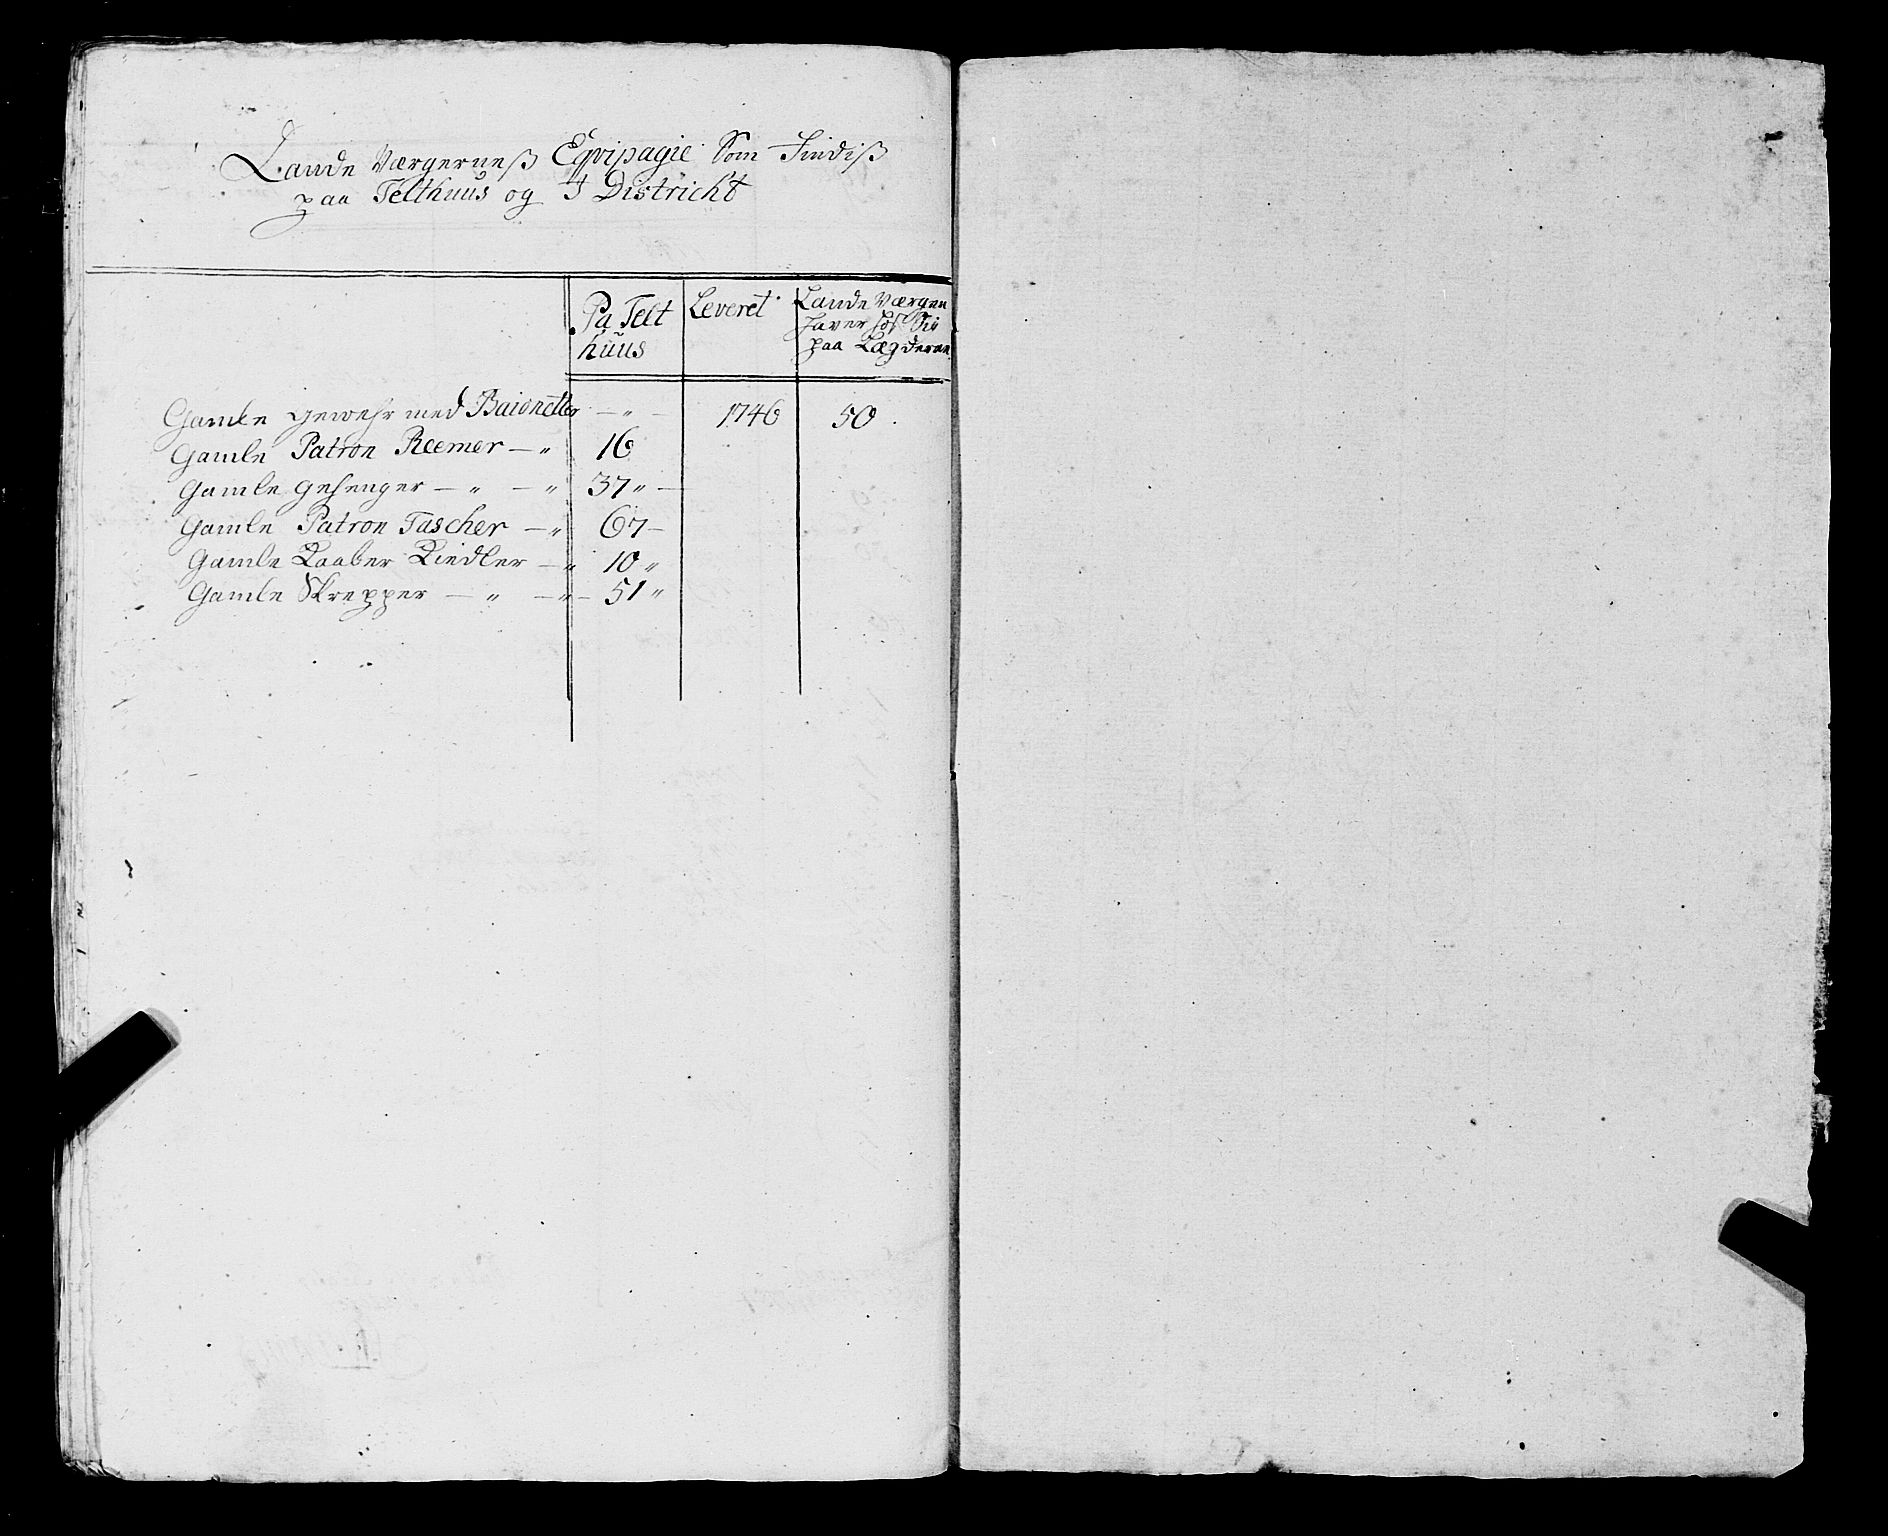 Lande Værgerneß Eqvipagie Som Findiß
paa Telthuus og I Districkt
Pa Telt huus
Leveret
Lande Værgen haver hos Sig paa Lægderne
Gamle gewehr med Baionetter — „ — 1746 50
Gamle Patron Reemer — „ 16
Gamle gehenger — „ — „ 37 „ —
Gamle Patron Tascher — „ 67 —
Gamle Kaaber Kiedler — „ 10 „
Gamle Skrepper — „ — „ — 51 „